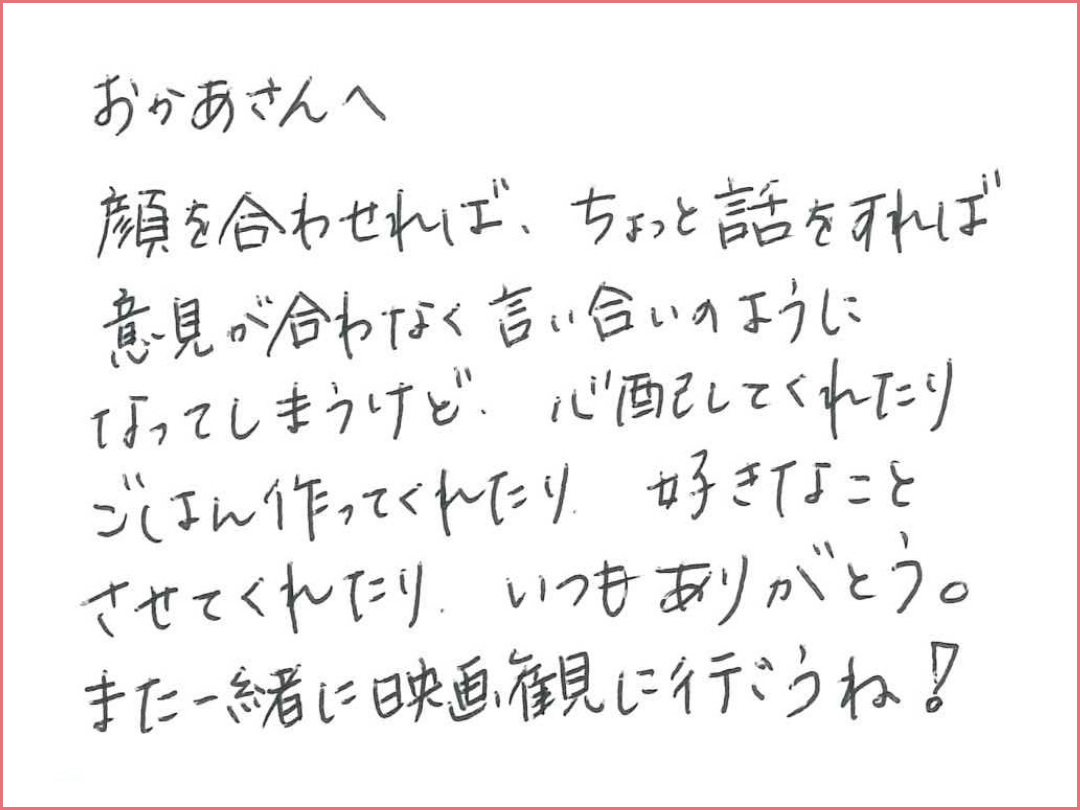 おかあさんへ
顔を合わせれば、ちょっと話をすれば
意見が合わなく言い合いのように
なってしまうけど、心配してくれたり
ごはん作ってくれたり、好きなこと
させてくれたり、いつもありがとう。
また一緒に映画観に行こうね!